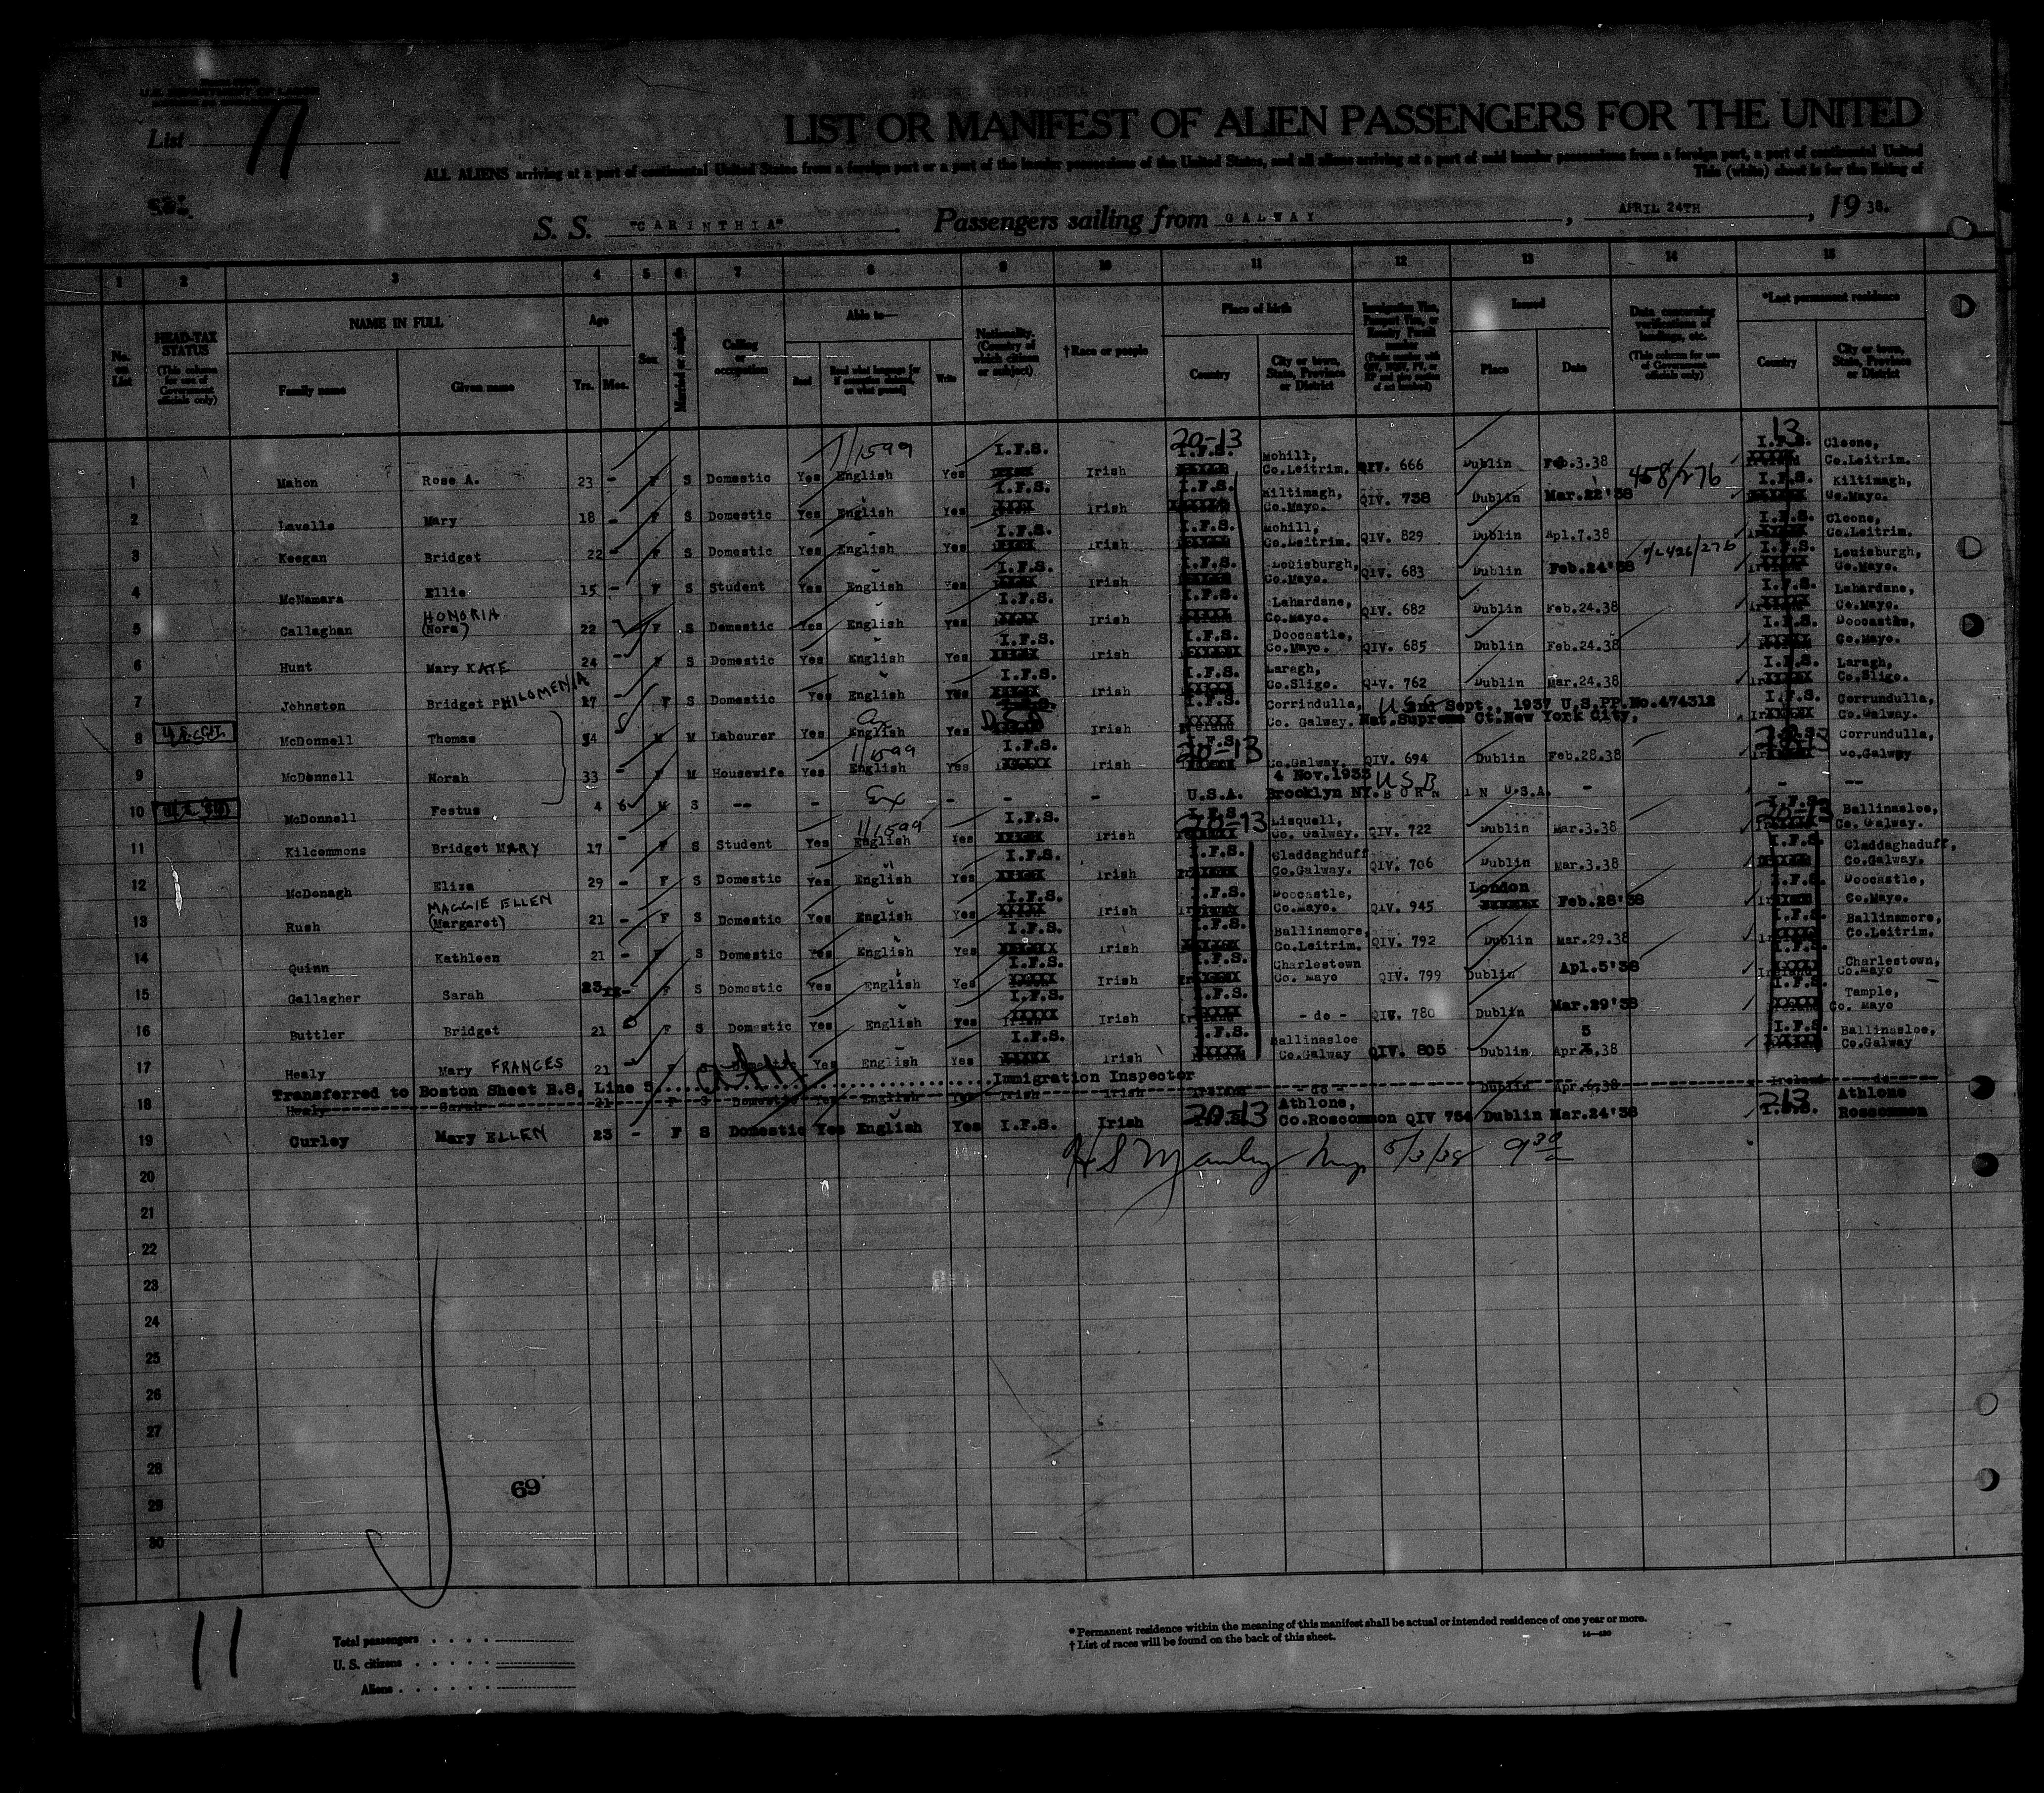 U.S. DEPARTMENT OF LABOR
List 11
LIST OR MANIFEST OF ALIEN PASSENGERS FOR THE UNITED
ALL ALIENS arriving at a port of continental United States from a foreign port or a port of the insular possessions of the United States, and all aliens arriving at a port of said insular possessions from a foreign port, a port of continental United
This (white) sheet is for the listing of
S. S. "CARINTHIA" Passengers sailing from GALWAY, APRIL 24TH, 1938.
1 2 3 4 5 6 7 8 9 10 11 12 13 14 15
No. on List
HEAD-TAX STATUS (This column for use of Government officials only)
NAME IN FULL Family name Given name
Age Yrs. Mos.
Sex
Married or single
Calling or occupation
Able to— Read Read what language [or if exemption claimed, on what ground] Write
Nationality. (Country of which citizen or subject)
†Race or people
Place of birth Country City or town, State, Province or District
Issued Place Date
Data concerning verifications of landings, etc. (This column for use of Government officials only)
*Last permanent residence Country City or town, State, Province or District
1 Mahon Rose A. 23 - F S Domestic Yes English Yes I.F.S. Irish I.F.S. Mohill, Co.Leitrim. QIV. 666 Dublin Feb.3.38 I.F.S. Cloone, Co.Leitrim.
1/1599 20-13 13 458/276
2 Lavelle Mary 18 - F S Domestic Yes English Yes I.F.S. Irish I.F.S. Kiltimagh, Co.Mayo. QIV. 738 Dublin Mar.22'38 I.F.S. Kiltimagh, Co.Mayo.
3 Keegan Bridget 22 - F S Domestic Yes English Yes I.F.S. Irish I.F.S. Mohill, Co.Leitrim. QIV. 829 Dublin Apl.7.38 I.F.S. Cloone, Co.Leitrim.
4 McNamara Ellie 15 - F S Student Yes English Yes I.F.S. Irish I.F.S. Louisburgh, Co.Mayo. QIV. 683 Dublin Feb.24'38 I.F.S. Louisburgh, Co.Mayo.
5 Callaghan HONORIA (Nora) 22 F S Domestic Yes English Yes I.F.S. Irish I.F.S. Lahardane, Co.Mayo. QIV. 682 Dublin Feb.24.38 I.F.S. Lahardane, Co.Mayo.
6 Hunt Mary KATE 24 - F S Domestic Yes English Yes I.F.S. Irish I.F.S. Doocastle, Co.Mayo. QIV. 685 Dublin Feb.24.38 I.F.S. Doocastle, Co.Mayo.
7 Johnston Bridget PHILOMENIA 27 - F S Domestic Yes English Yes I.F.S. Irish I.F.S. Laragh, Co.Sligo. QIV. 762 Dublin Mar.24.38 I.F.S. Laragh, Co.Sligo.
8 U.S. CIT. McDonnell Thomas 34 M M Labourer Yes English Yes Irish I.F.S. Corrindulla, Co. Galway. Sept., 1937 U.S.PP.No.474312 Nat.Supreme Ct.New York City, I.F.S. Corrundulla, Co.Galway.
9 McDonnell Norah 33 - F M Housewife Yes English Yes I.F.S. Irish Co.Galway. QIV. 694 Dublin Feb.28.38 Corrundulla, Co.Galway
1/1599 20-13
10 McDonnell Festus 4 6 M S -- - Ex - - - U.S.A. 4 Nov.1933 Brooklyn NY. USB BORN IN U.S.A. - - --
11 Kilcommons Bridget MARY 17 - F S Student Yes English Yes I.F.S. Irish I.F.S. Lisquell, Co. Galway. QIV. 722 Dublin Mar.3.38 I.F.S. Ballinasloe, Co. Galway.
1/1599 20-13
12 McDonagh Eliza 29 - F S Domestic Yes English Yes I.F.S. Irish I.F.S. Claddaghduff Co.Galway. QIV. 706 Dublin Mar.3.38 I.F.S. Claddaghaduff, Co.Galway.
13 Rush MAGGIE ELLEN (Margaret) 21 - F S Domestic Yes English Yes I.F.S. Irish I.F.S. Doocastle, Co.Mayo. QIV. 945 London Feb.28'38 I.F.S. Doocastle, Co.Mayo.
14 Quinn Kathleen 21 - F S Domestic Yes English Yes I.F.S. Irish I.F.S. Ballinamore, Co.Leitrim. QIV. 792 Dublin Mar.29.38 I.F.S. Ballinamore, Co.Leitrim.
15 Gallagher Sarah 23 - F S Domestic Yes English Yes I.F.S. Irish I.F.S. Charlestown Co. Mayo QIV. 799 Dublin Apl.5'38 I.F.S. Charlestown, Co.Mayo
16 Buttler Bridget 21 F S Domestic Yes English Yes I.F.S. Irish I.F.S. - do - QIV. 780 Dublin Mar.29'38 I.F.S. Tample, Co. Mayo
17 Healy Mary FRANCES 21 - F S Domestic Yes English Yes I.F.S. Irish I.F.S. Ballinasloe Co.Galway QIV. 805 Dublin Apr.5.38 I.F.S. Ballinasloe, Co.Galway
Transferred to Boston Sheet B.8, Line 5 Immigration Inspector
18 Healy Sarah 21 F S Domestic Yes English Yes Irish Irish Ireland - do - Dublin Apr.6,38 Ireland - do -
19 Curley Mary ELLEN 23 - F S Domestic Yes English Yes I.F.S. Irish 20-13 Athlone, Co.Roscommon QIV 754 Dublin Mar.24'38 I.F.S. Athlone Roscommon
20 5/3/38 9 30
21
22
23
24
25
26
27
28
29
30
69
11
Total passengers
U. S. citizens
Aliens
* Permanent residence within the meaning of this manifest shall be actual or intended residence of one year or more.
† List of races will be found on the back of this sheet.
14—430